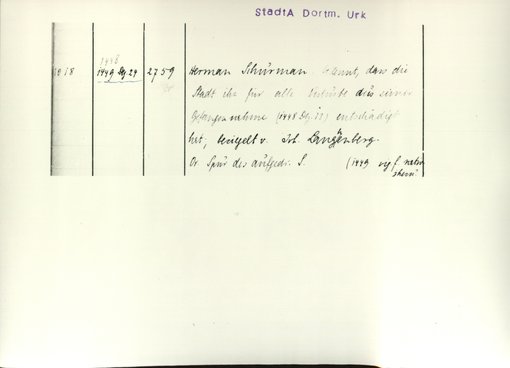 StadtA Dortm. Urk
1448
1018 1449 Dez. 29 2759 Herman Schürman bekennt, dass die
Stadt ihn für alle Verluste aus seiner
Gefangennahme (1448 Dez. 13) entschädigt
hat; besiegelt v. Joh. Langenberg.
Or. Spur des aufgedr. S. (1449 vgf. nativ